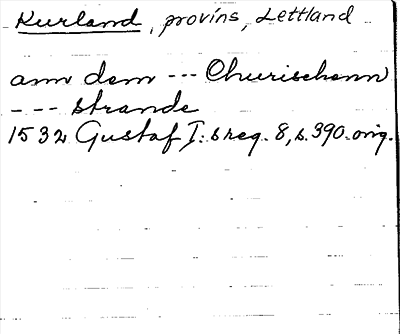 Kurland, provins, Lettland
ann dem --- Churischenn
--- Strande
1532 Gustaf I:s reg. 8, s. 390. orig.